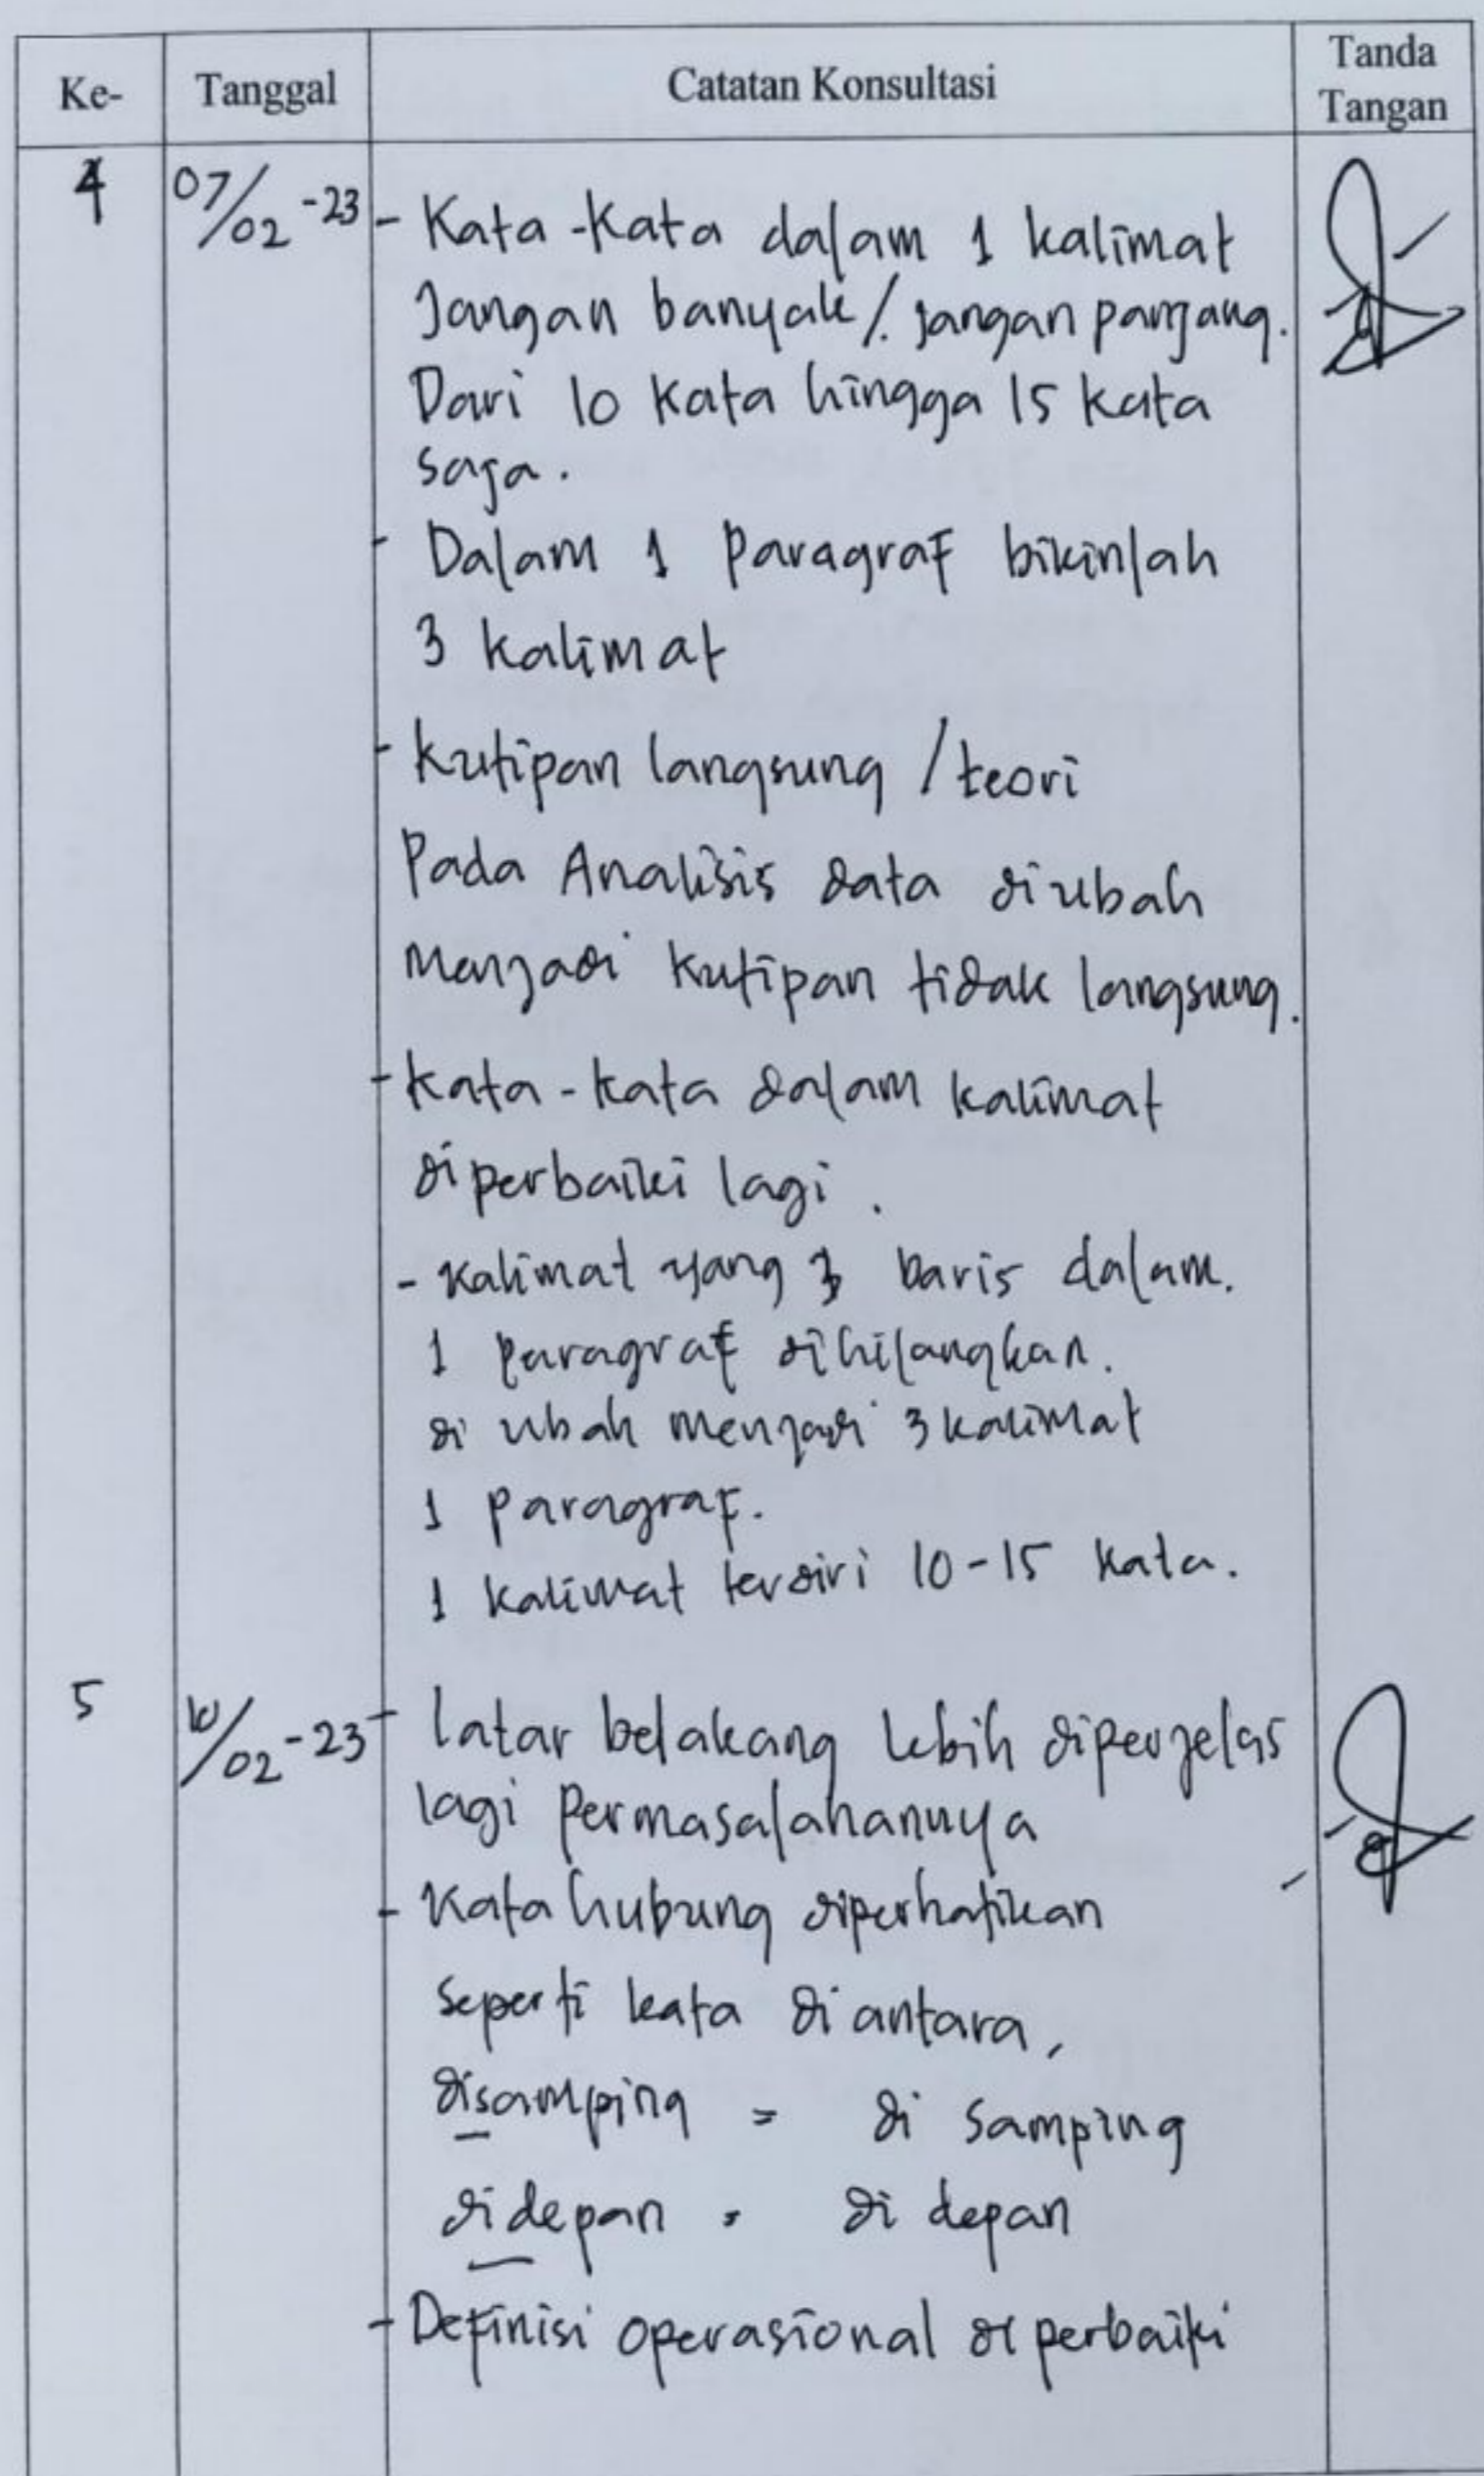 Ke- Tanggal Catatan Konsultasi Tanda Tangan
4 07/02-23 - Kata-kata dalam 1 kalimat
Jangan banyak/. jangan panjang.
Dari 10 kata hingga 15 kata
saja.
- Dalam 1 Paragraf bikinlah
3 kalimat
- kutipan langsung / teori
Pada Analisis data diubah
menjadi kutipan tidak langsung.
- kata-kata dalam kalimat
diperbaiki lagi.
- Kalimat yang 3 baris dalam.
1 paragraf dihilangkan.
di ubah menjadi 3 kalimat
1 paragraf.
1 kalimat terdiri 10-15 kata.
5 /02-23 - latar belakang lebih diperjelas
lagi Permasalahannya
- Kata hubung diperhatikan
seperti kata di antara,
disamping = di samping
didepan = di depan
- Definisi operasional diperbaiki